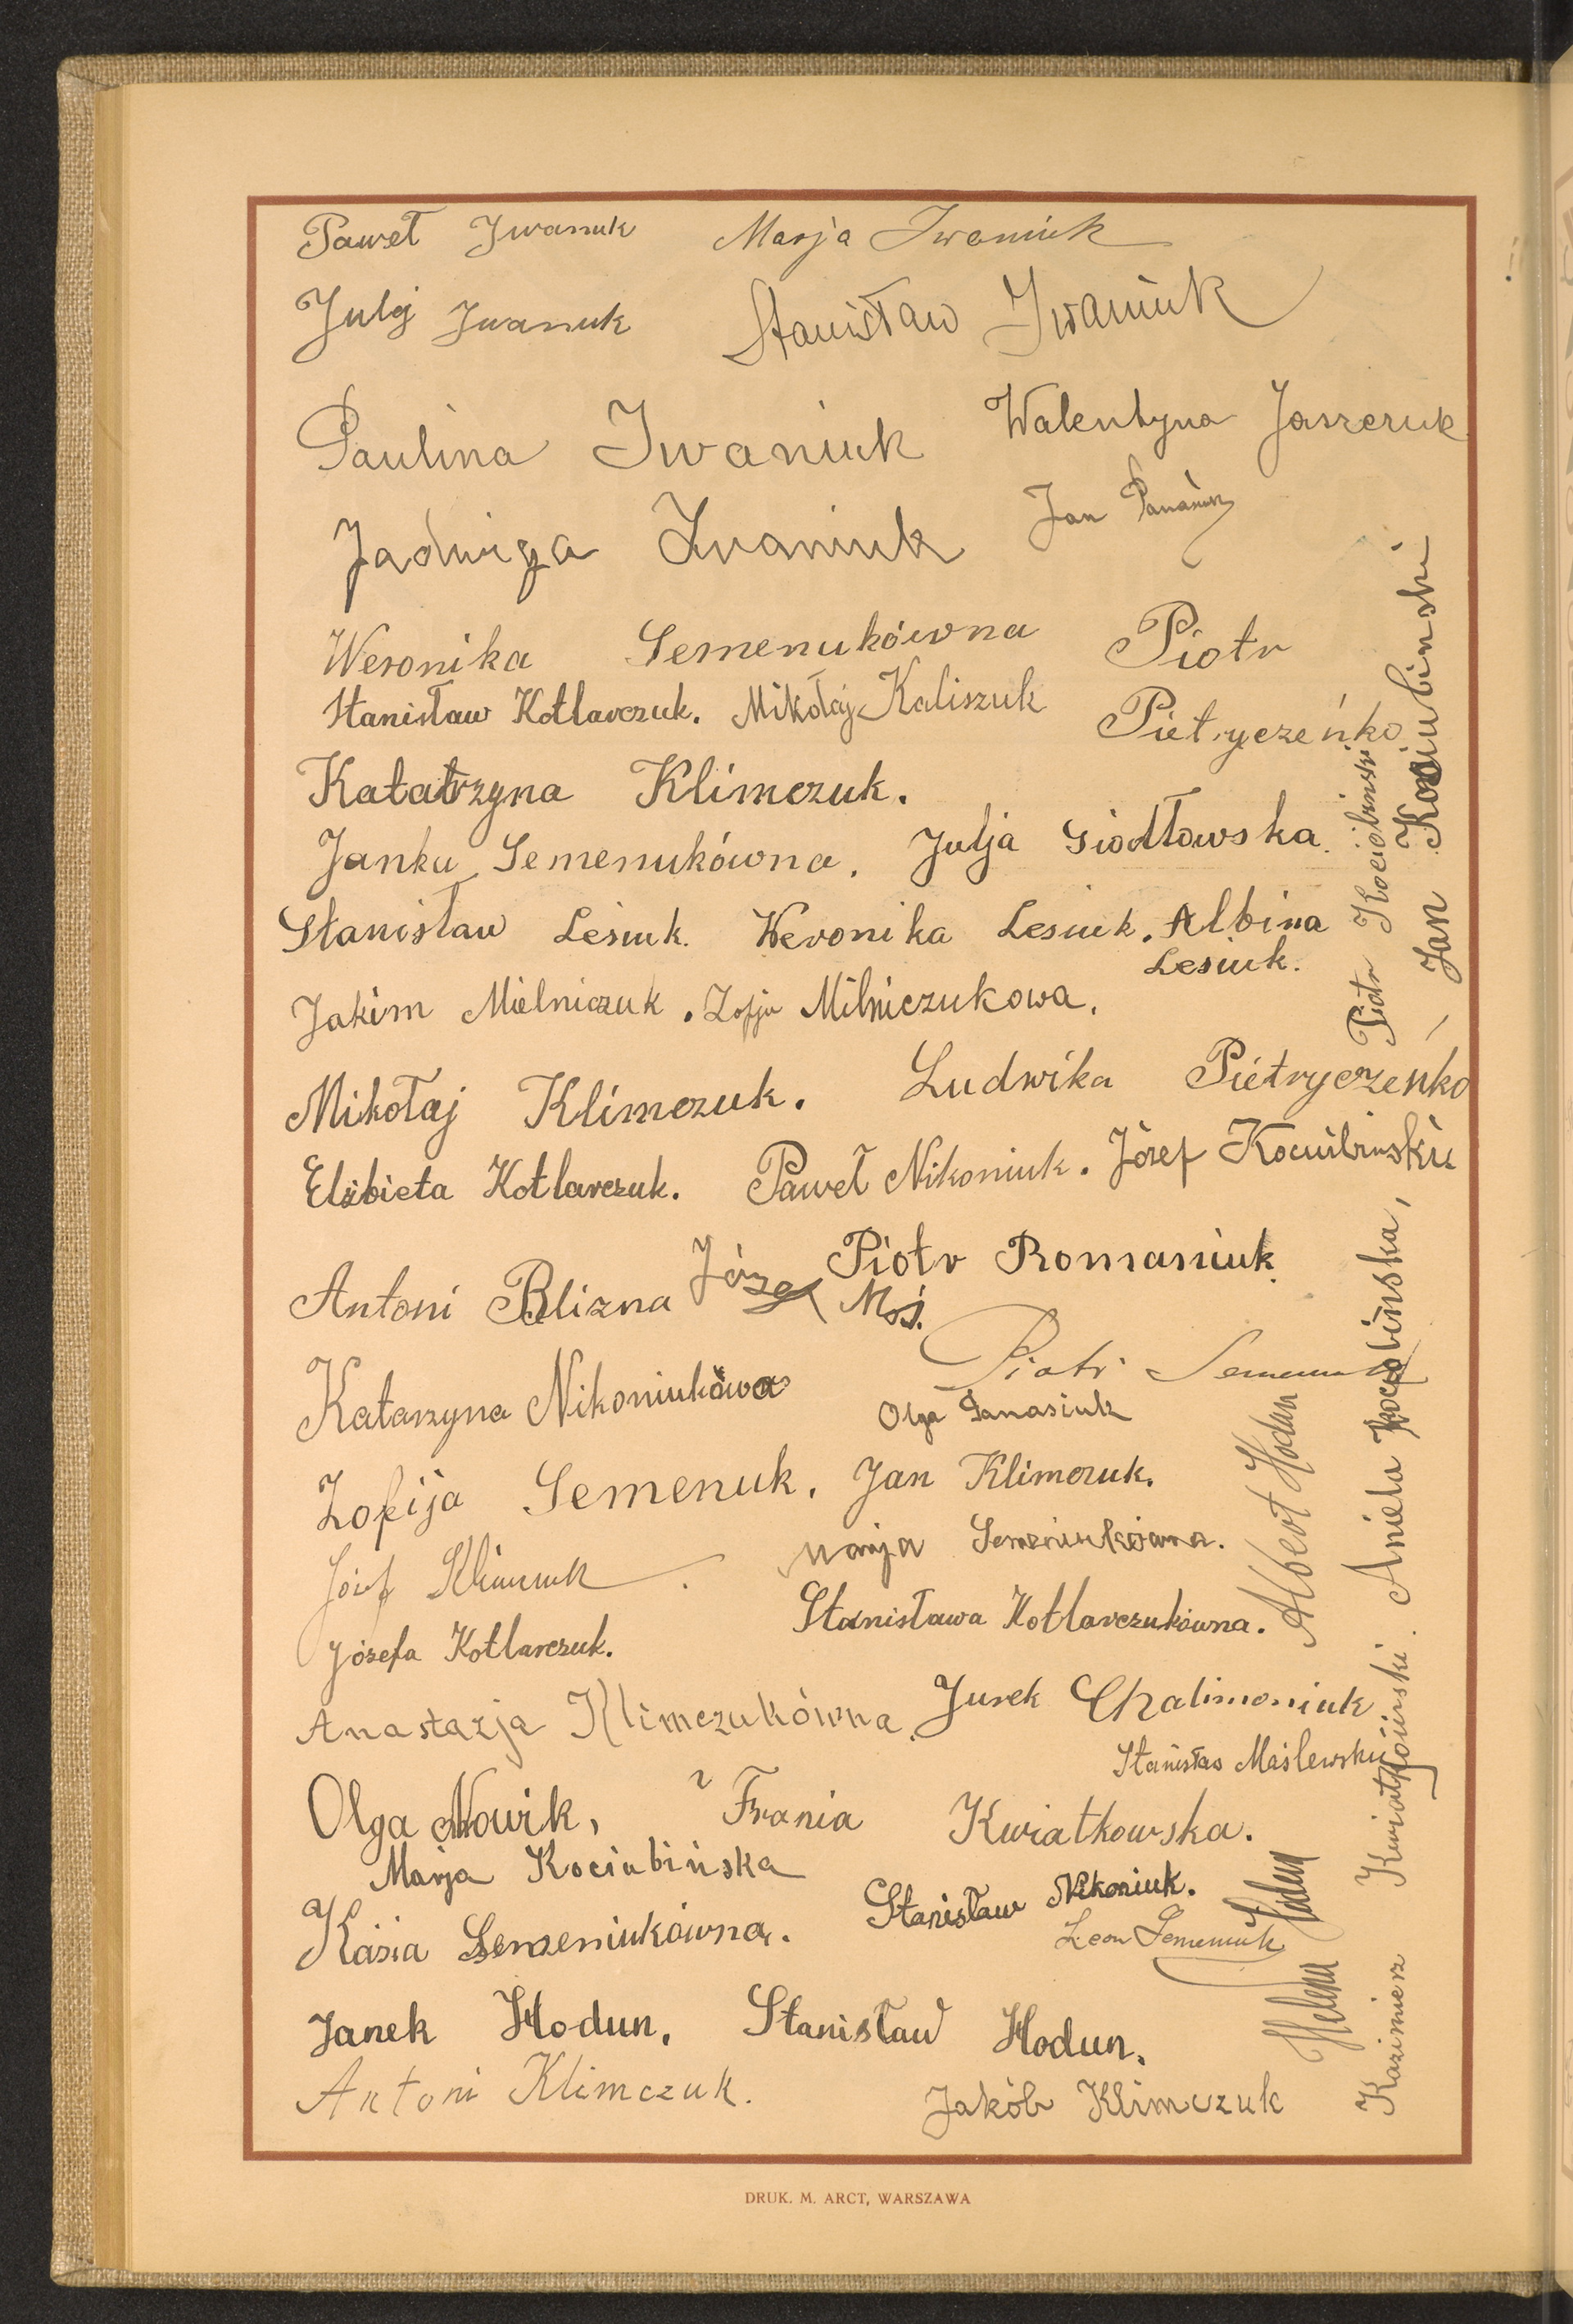 Paweł Iwanuk Marja Iwaniuk
Julj Iwanuk Stanisław Iwaniuk
Paulina Iwaniuk Walentyna Jaszczuk
Jadwiga Iwaniuk Jan
Weronika Semenukówna Piotr
Stanisław Kotlarczuk. Mikołaj Kaliszuk Pietryczeńko
Katatrzyna Klimczuk.
Janku Semenukówna. Julja Siodłowska.
Stanisław Lesiuk. Weronika Lesiuk. Albina
Lesiuk.
Jakim Mielniczuk. Zofja Milniczukowa.
Mikołaj Klimczuk. Ludwika Pietryczenko
Elżbieta Kotlarczuk. Paweł Nikoniuk. Józef
Piotr Romaniuk
Antoni Blizna Józef Moś.
Katarzyna Nikoniukówa Piotr
Olga Panasiuk
Zofija Semenuk. Jan Klimczuk.
Józef Klimczuk. Marja Semeniukówna.
Józefa Kotlarczuk. Stanisława Kotlarczukówna.
Anastazja Klimczukówna. Jurek Chalimoniuk
Stanisław Maślewski
Olga Nowik, Frania Kwiatkowska.
Marja Kociubińska
Kasia Semeniukówna. Stanisław Nikoniuk.
Leon Semeniuk
Janek Hodun. Stanisław Hodun.
Antoni Klimczuk. Jakób Klimczuk
Albert Hodun
Helena Hodun
Piotr Kociubiński
Kazimierz Kwiatkowski. Aniela Kociubińska, Jan Kociubinski
DRUK. M. ARCT, WARSZAWA